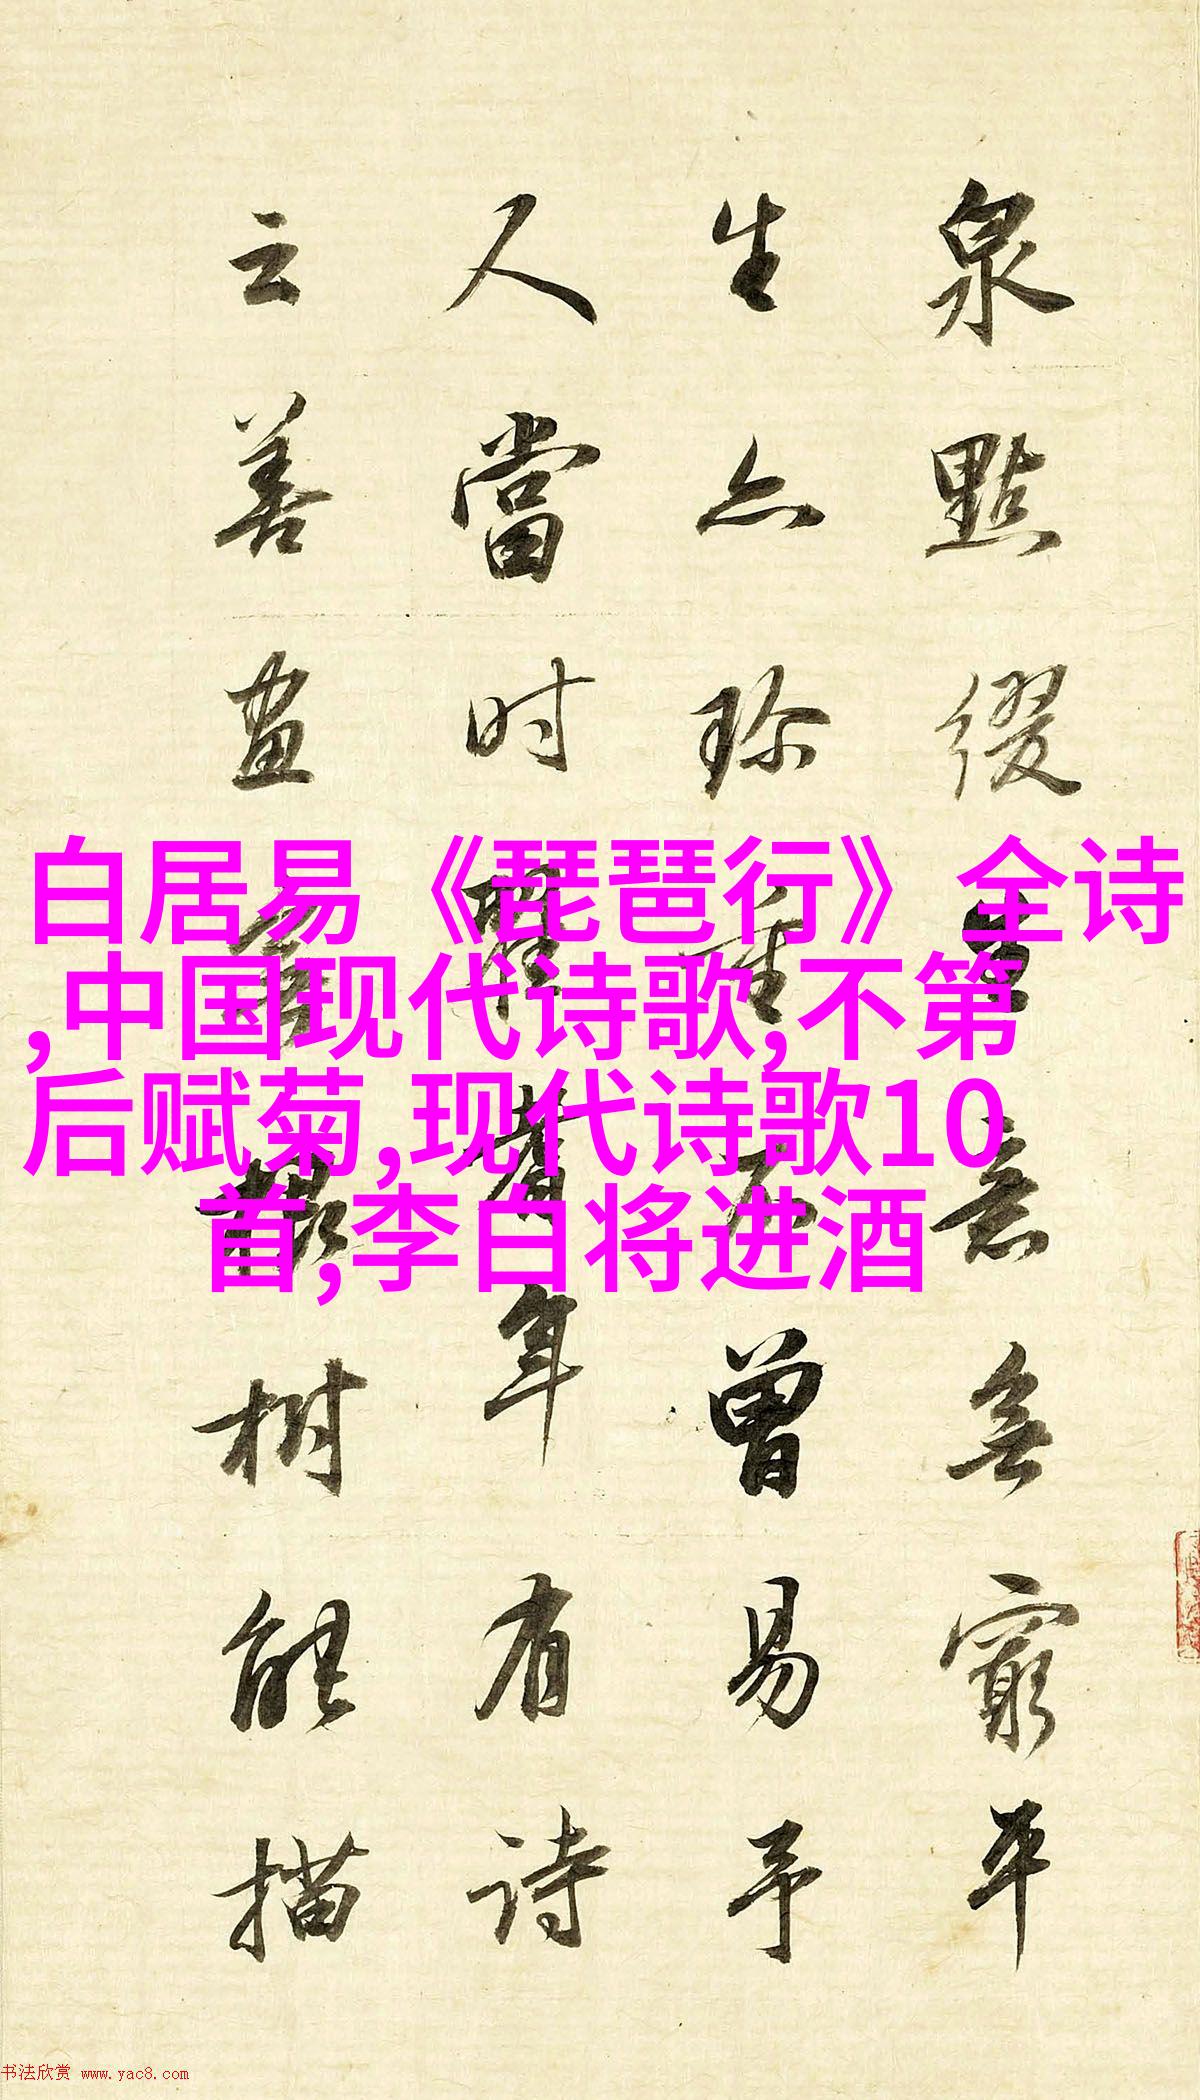 白居易《琵琶行》全诗
,中国现代诗歌,不第
后赋菊,现代诗歌10
首,李白将进酒
泉點綴意無窮平
生亦珍重曾易予
人當時年有詩
云善畫樹能描
书法欣赏 www.yac8.com